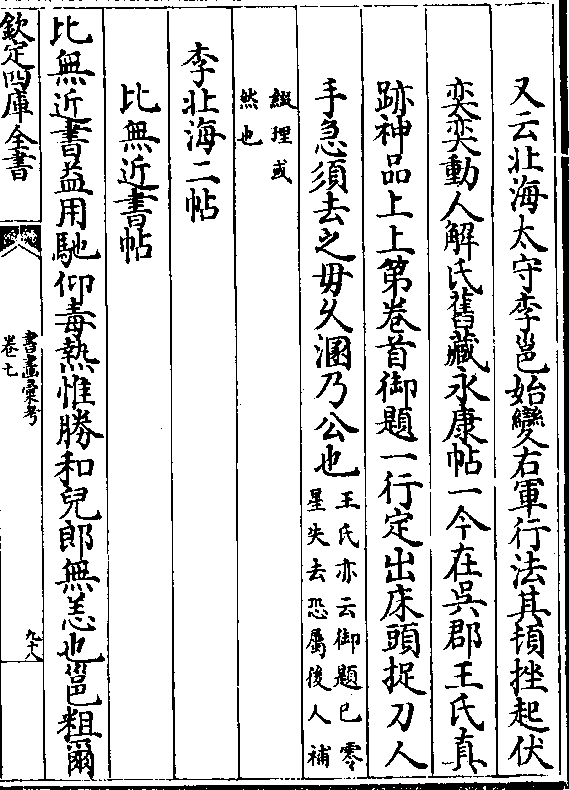 又云北海太守李邕始變右軍行法其頓挫起伏
奕奕動人解氏舊藏永康帖一今在吳郡王氏真
跡神品上上第卷首御題一行定出床頭捉刀人
手急須去之毋久溷乃公也王氏亦云御題已零
星失去恐屬後人補
綴理或
然也
李北海二帖
比無近書帖
比無近書益用馳仰毒熱惟勝和兒郎無恙也邕粗爾
欽定四庫全書
書畫彙考
卷七
九十八